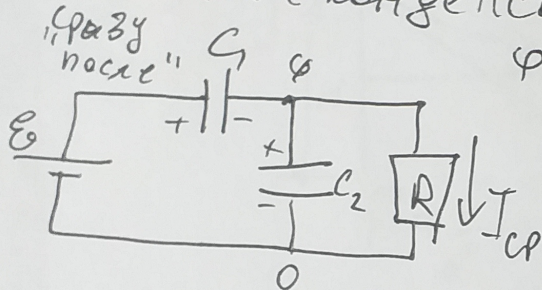 „Сразу
после"
C₁
φ
φ
ℰ
+
-
+
-
C₂
R
I
ср
0